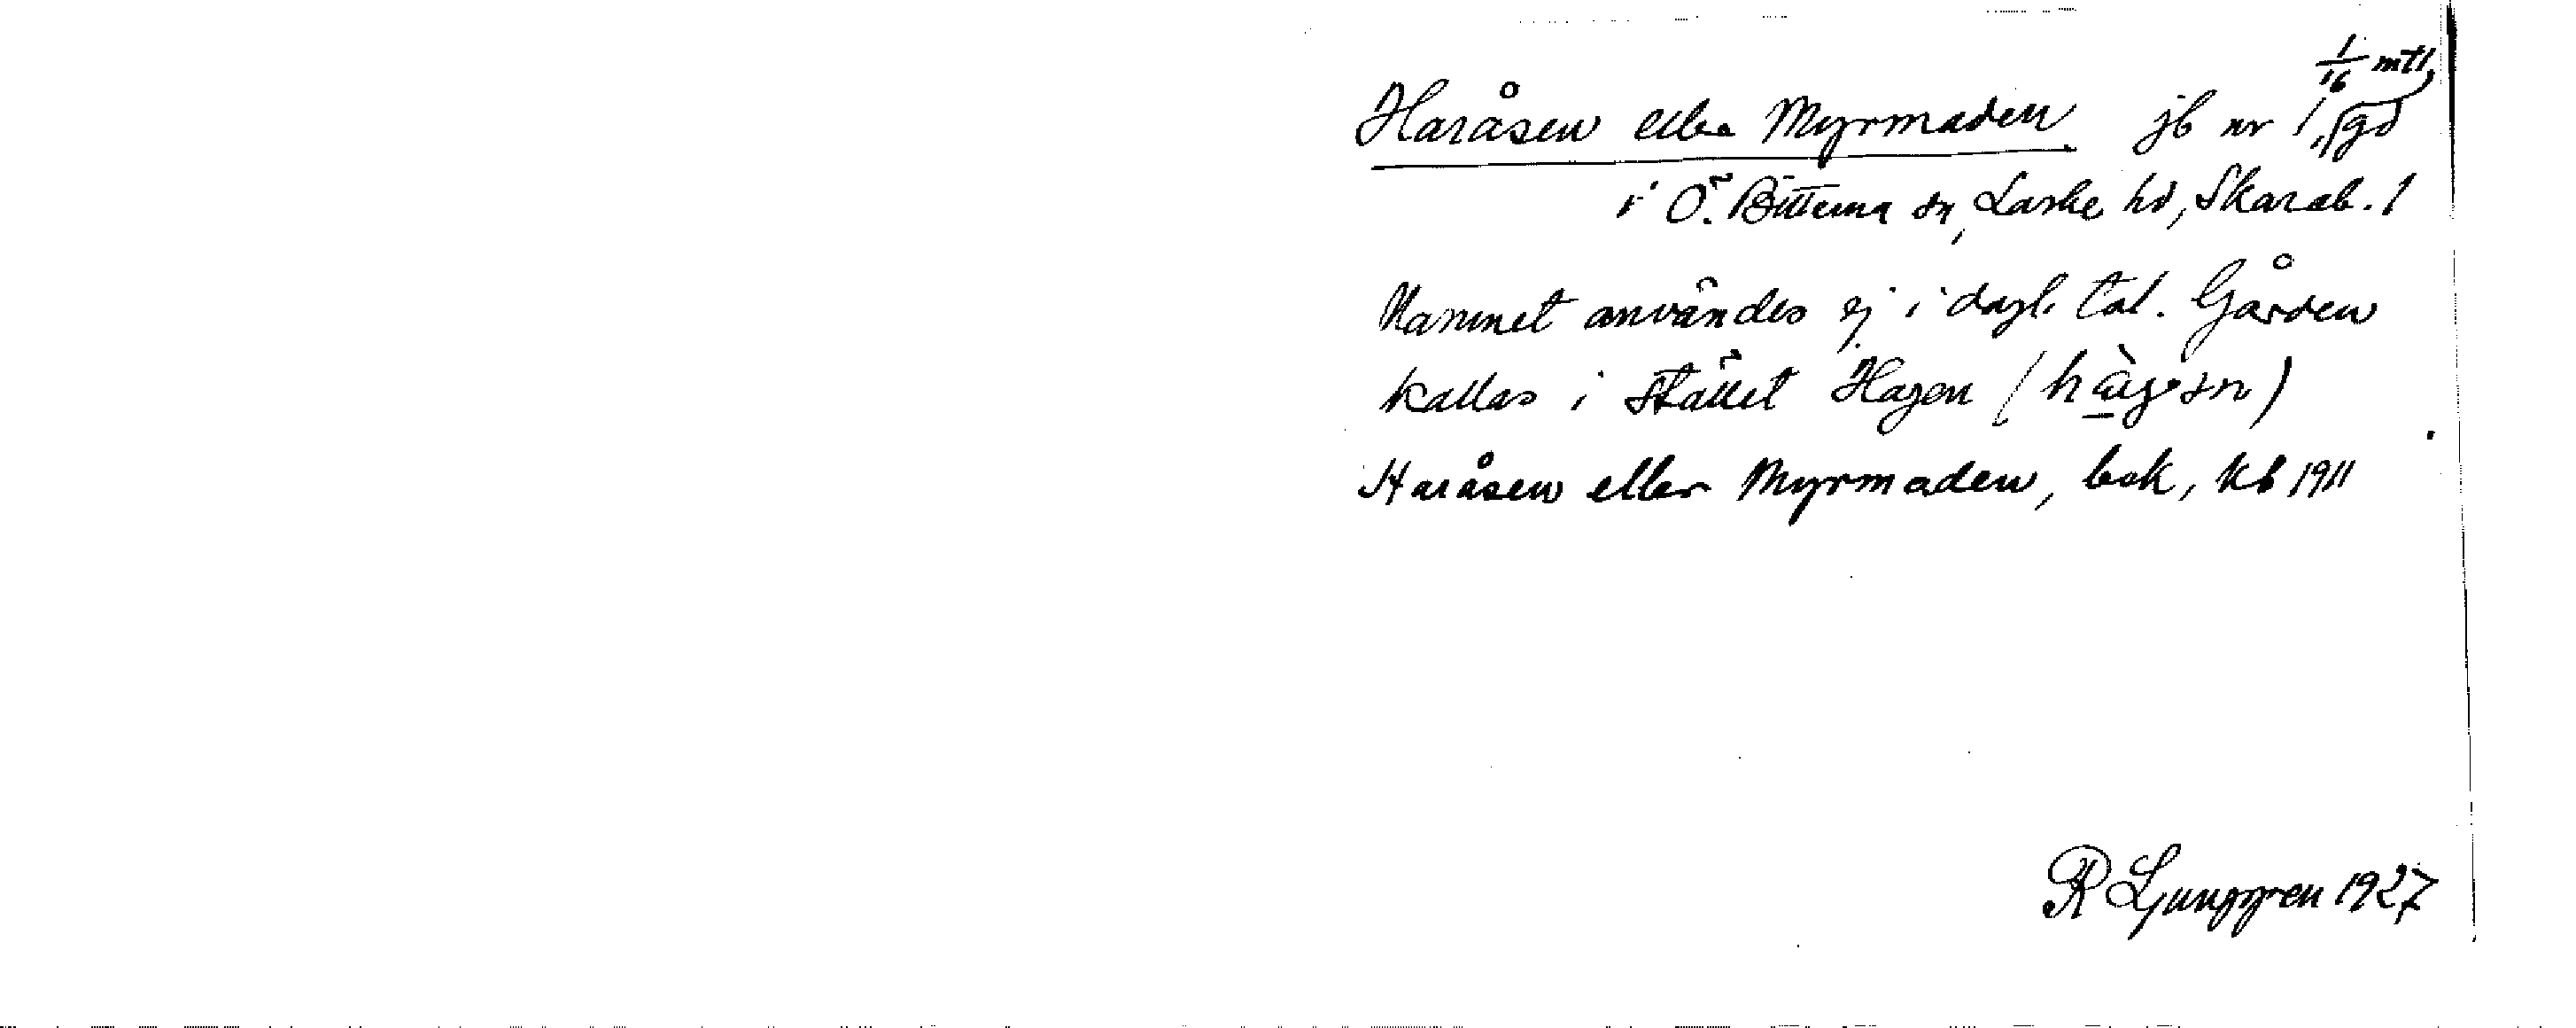 Haråsen eller Myrmaden jb nr 1, 1/16 mtl, gd
i Ö. Bitterna sn, Laske hd, Skarab. l
Namnet användes ej i dagl. tal. Gården
kallas i stället Hagen (
Haråsen eller Myrmaden, bok, kb 1911
R Ljunggren 1927